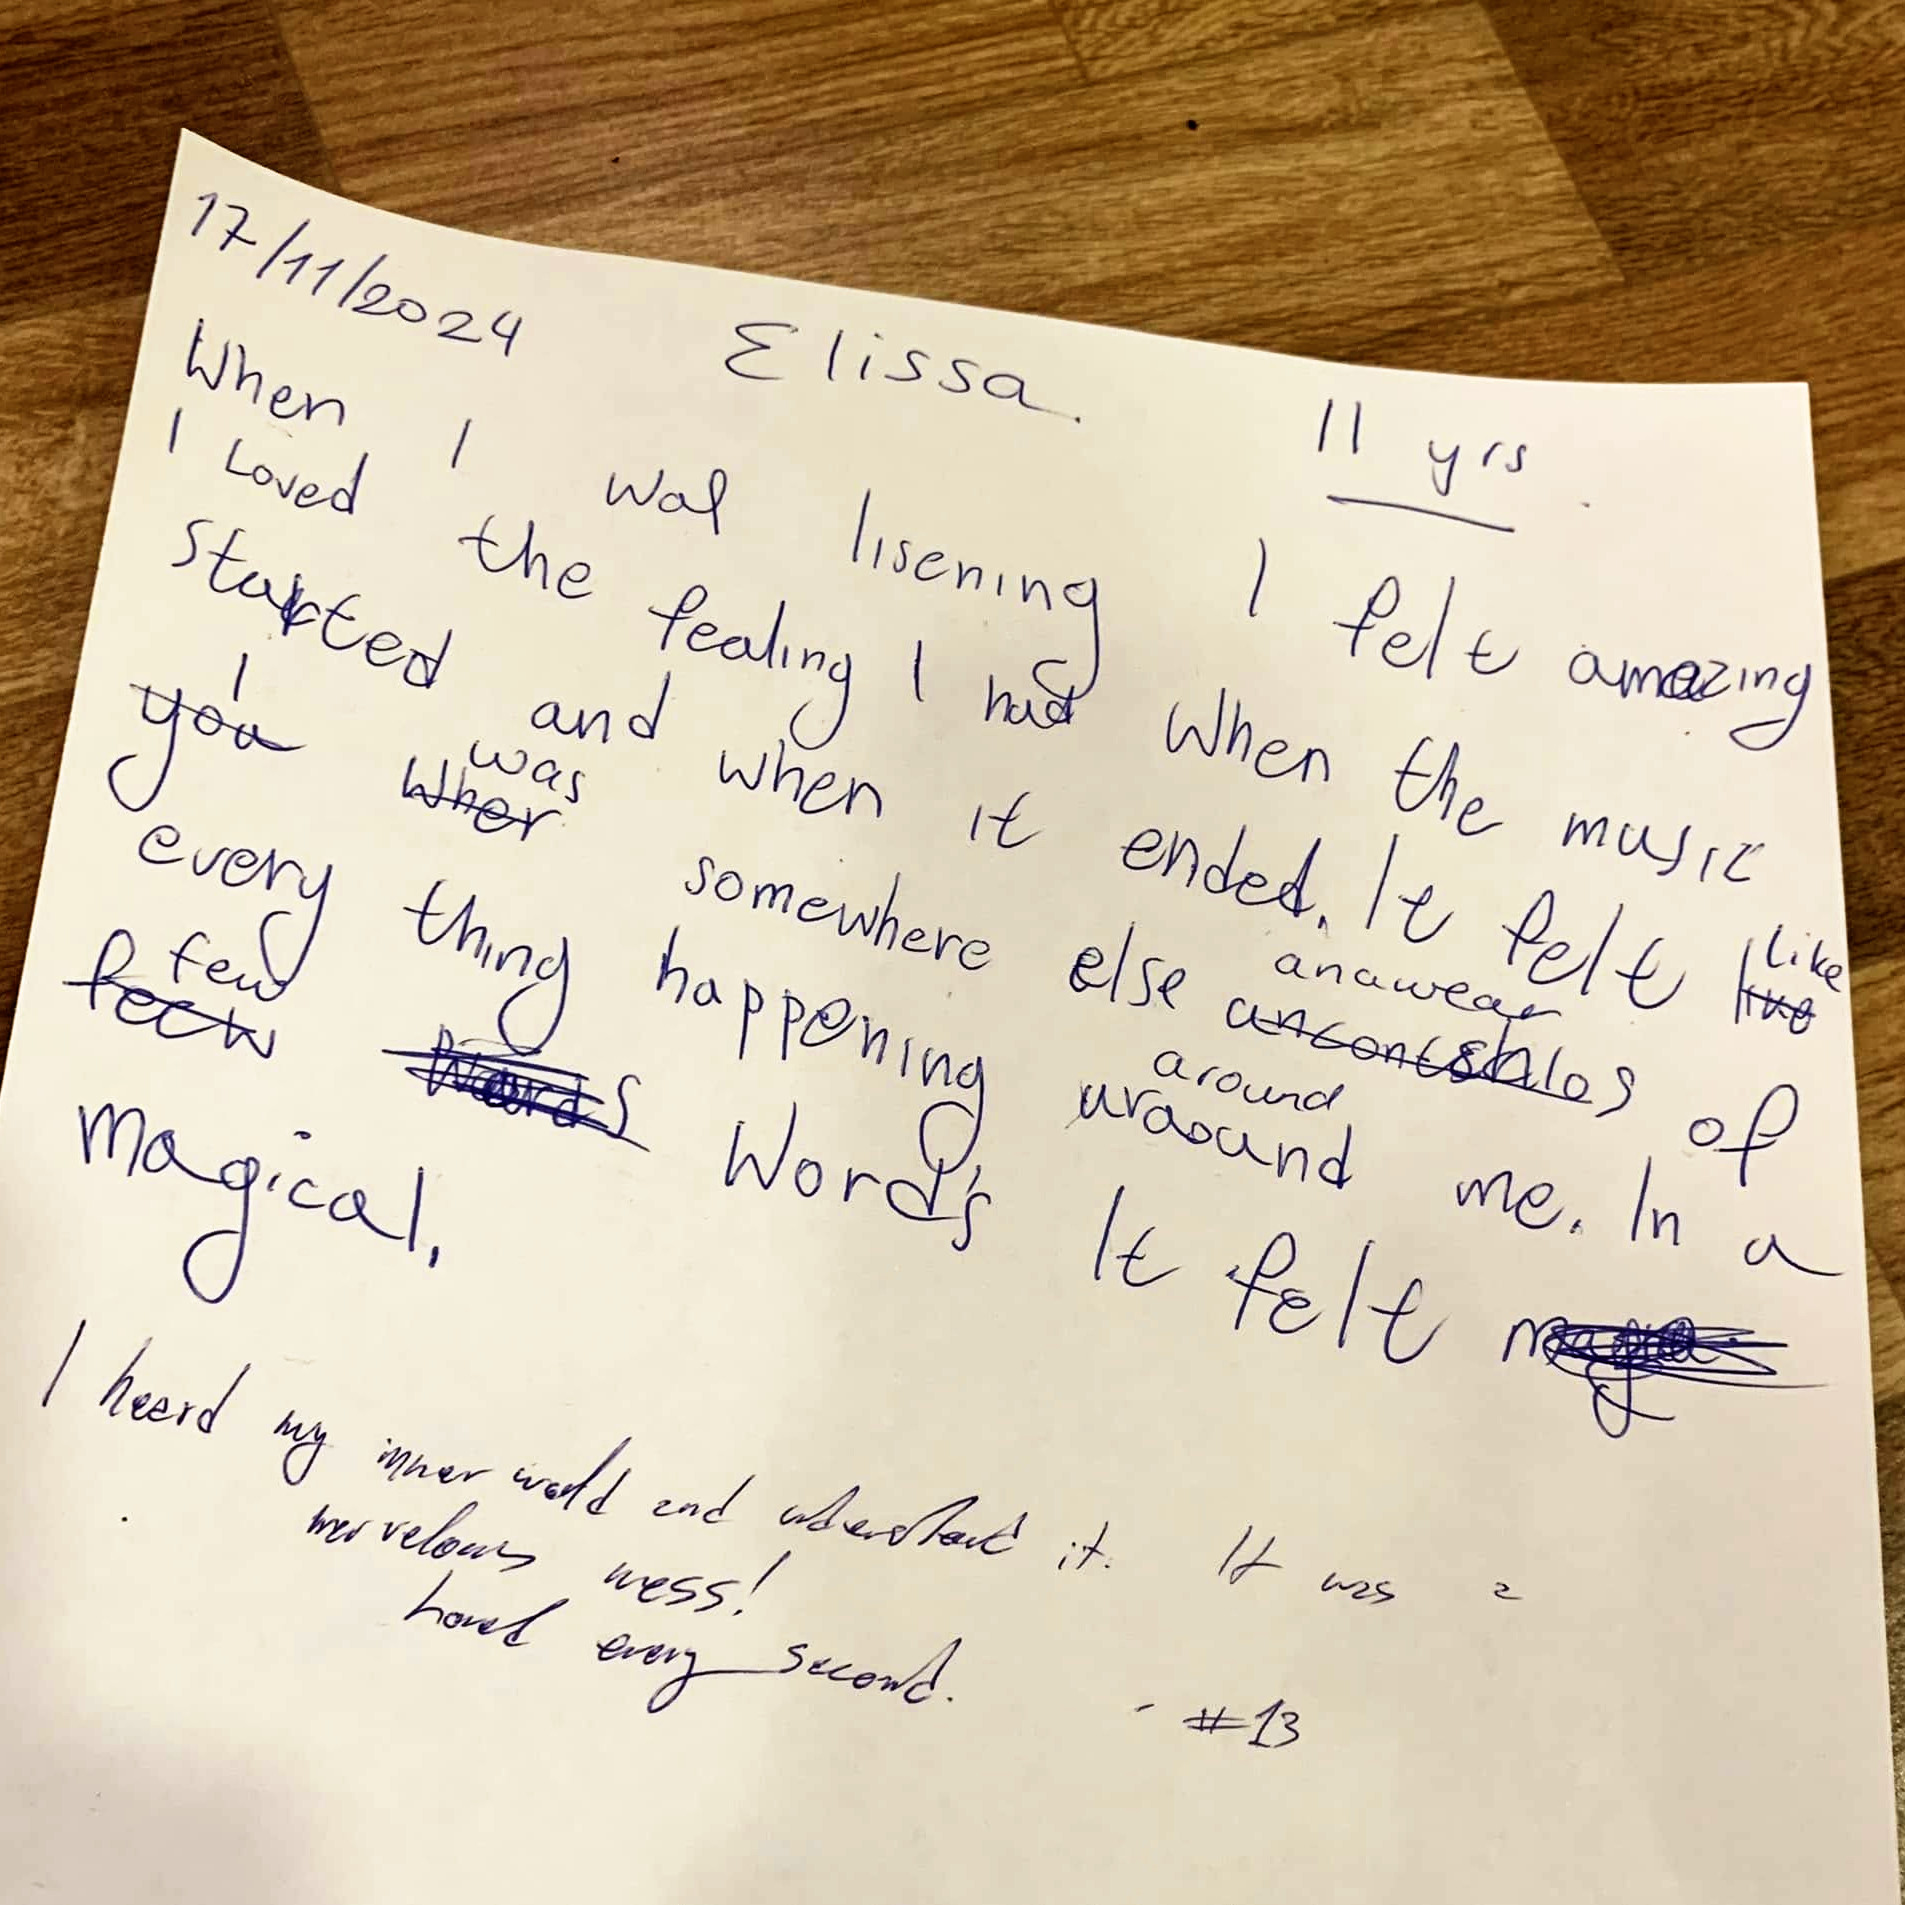 17/11/2024 Elissa. 11 yrs.
When I was lisening I felt amazing
I Loved the fealing I had when the music
started and when it ended. It felt like
I was somewhere else anawear of
every thing happening around me. In a
few Word's It felt
magical.
I heard my inner world and understand it. It was a
marvelous mess!
Loved every second.
- #13